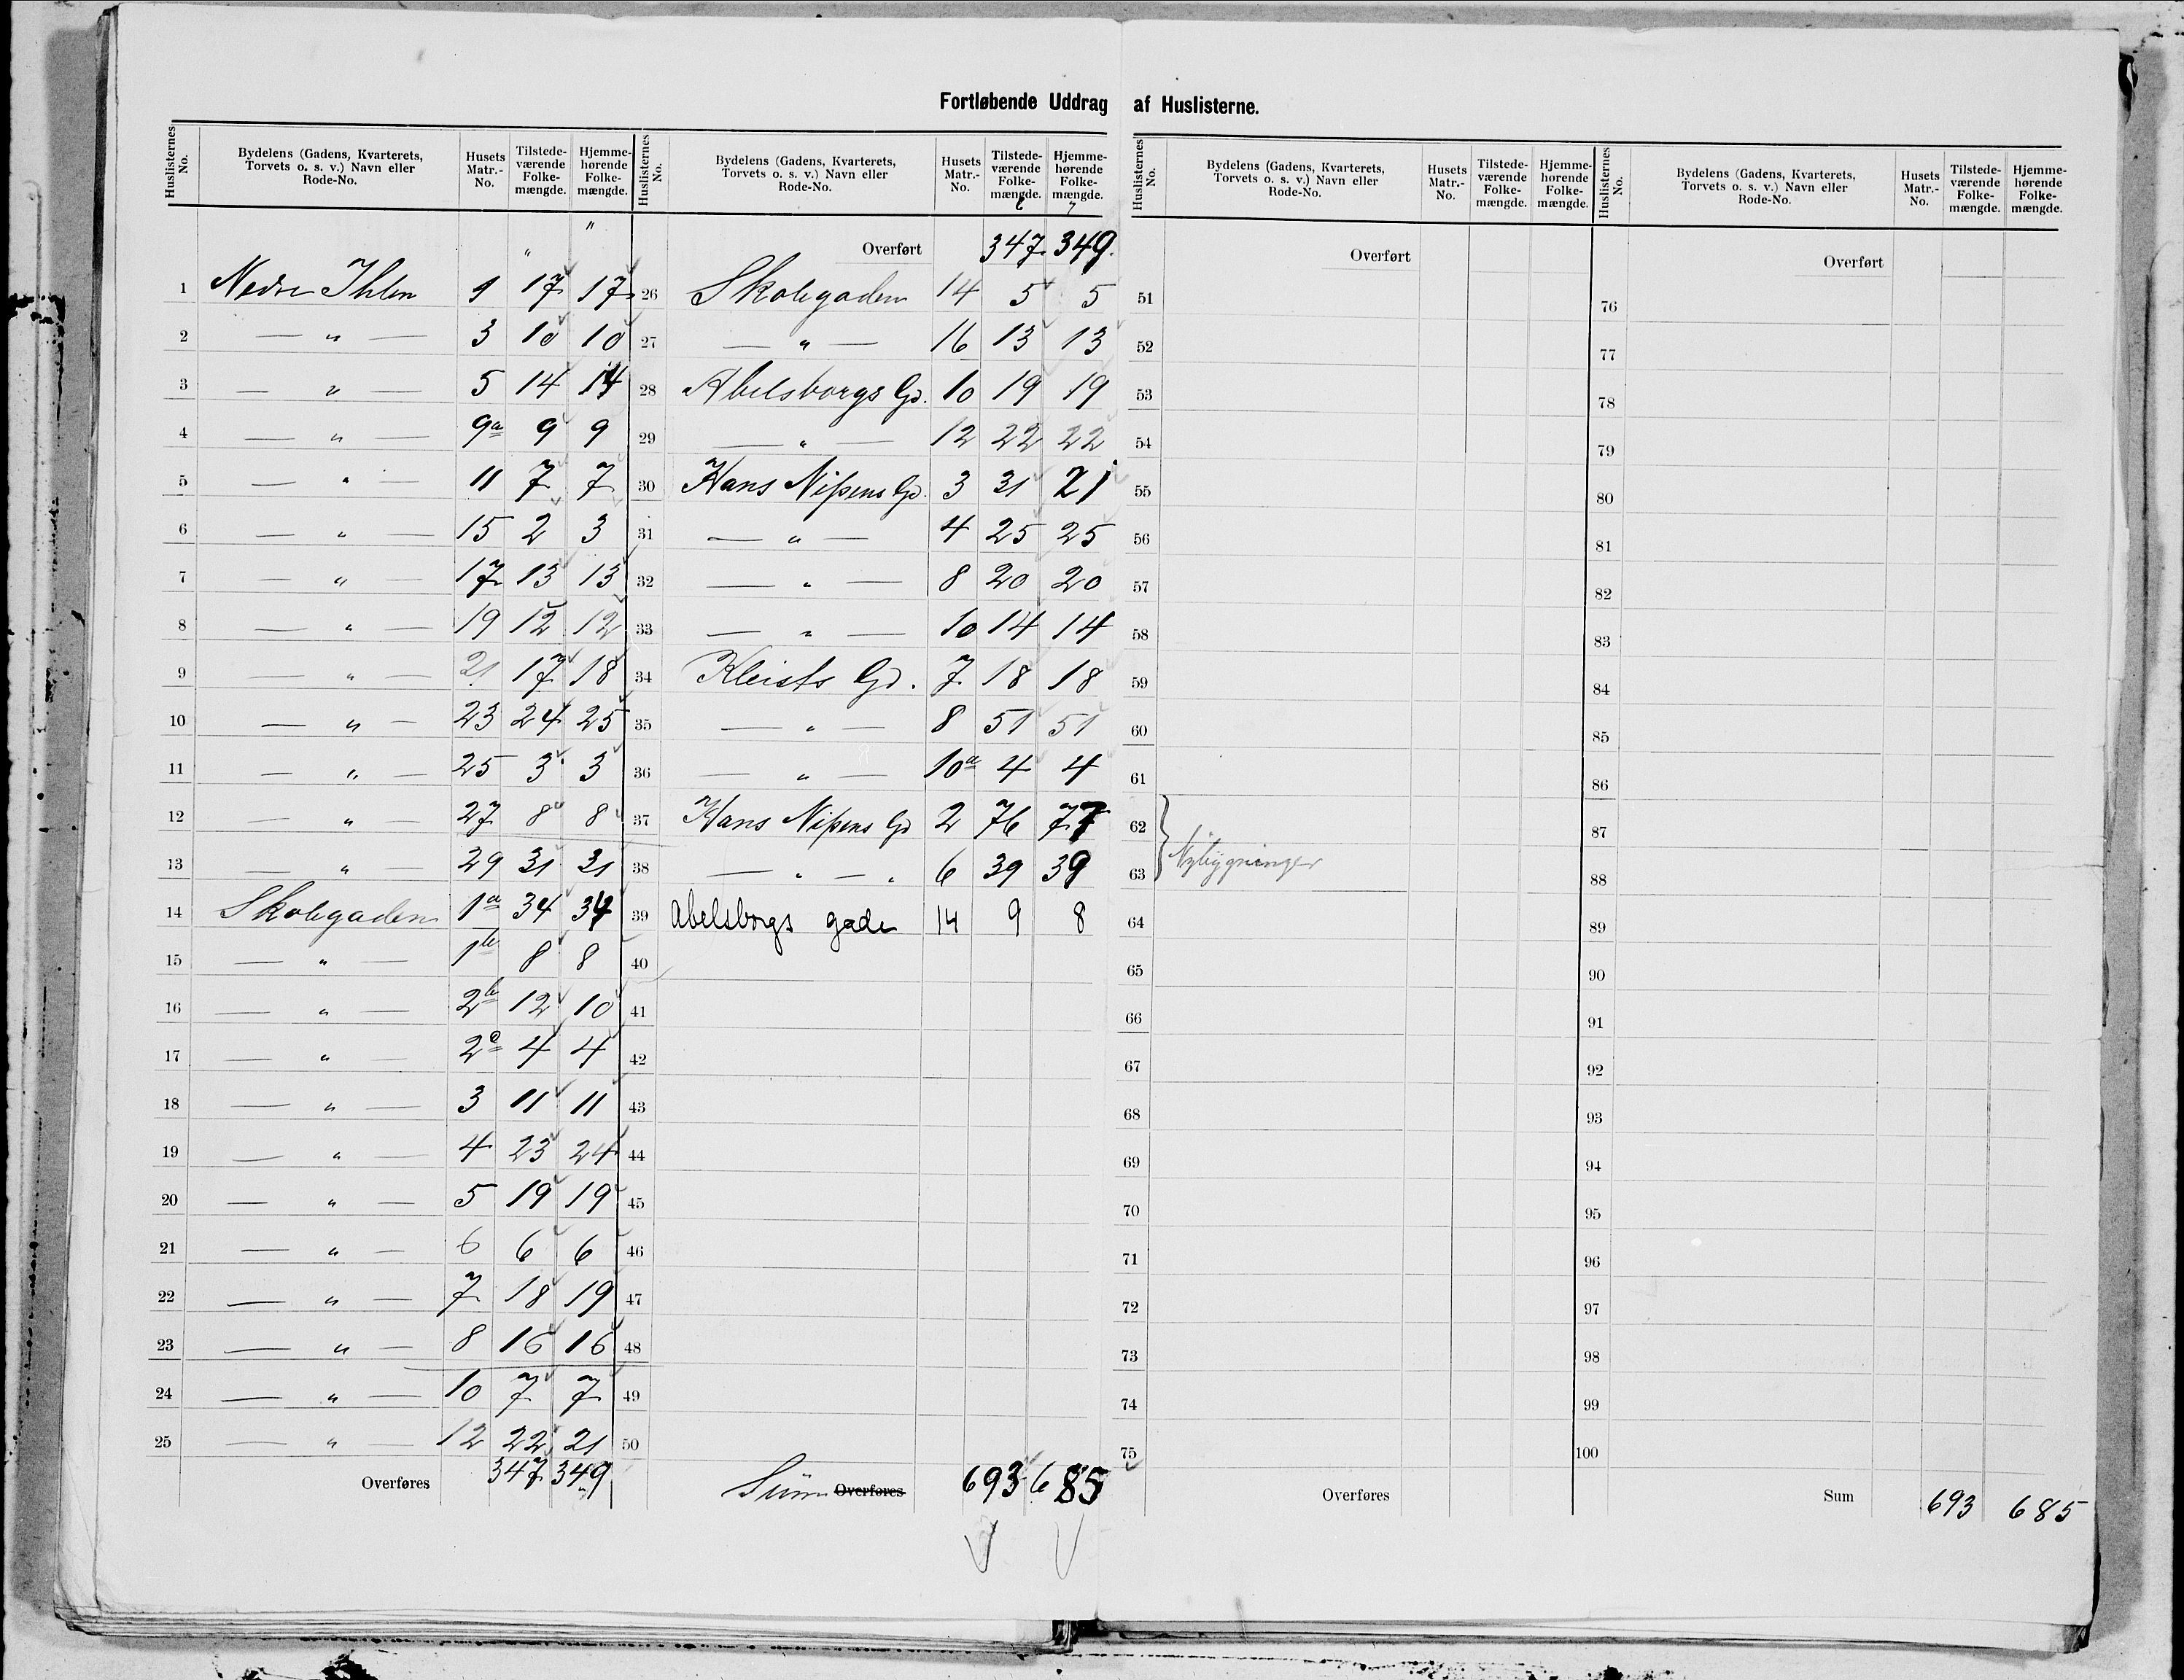 Fortløbende Uddrag af Huslisterne.
Huslisternes No. | Bydelens (Gadens, Kvarterets, Torvets o. s. v.) Navn eller Rode-No. | Husets Matr.-No. | Tilstede-værende Folke-mængde. | Hjemme-hørende Folke-mængde.
1 Nedre Ihlen 1 17 17
2 — „ — 3 10 10
3 — „ — 5 14 14
4 — „ — 9a 9 9
5 — „ — 11 7 7
6 — „ — 15 2 3
7 — „ — 17 13 13
8 — „ — 19 12 12
9 — „ — 21 17 18
10 — „ — 23 24 25
11 — „ — 25 3 3
12 — „ — 27 8 8
13 — „ — 29 31 31
14 Skolegaden 1a 34 34
15 — „ — 1b 8 8
16 — „ — 2b 12 10
17 — „ — 2c 4 4
18 — „ — 3 11 11
19 — „ — 4 23 24
20 — „ — 5 19 19
21 — „ — 6 6 6
22 — „ — 7 18 19
23 — „ — 8 16 16
24 — „ — 10 7 7
25 — „ — 12 22 21
Overføres 347 349
Huslisternes No. | Bydelens (Gadens, Kvarterets, Torvets o. s. v.) Navn eller Rode-No. | Husets Matr.-No. | Tilstede-værende Folke-mængde. | Hjemme-hørende Folke-mængde.
6 7
Overført 347 349.
26 Skolegaden 14 5 5
27 — „ — 16 13 13
28 Abelsborgs Gd. 10 19 19
29 — „ — 12 22 22
30 Hans Nißens Gd. 3 31 21
31 — „ — 4 25 25
32 — „ — 8 20 20
33 — „ — 10 14 14
34 Kleists Gd. 7 18 18
35 — „ — 8 51 51
36 — „ — 10a 4 4
37 Hans Nißens Gd 2 76 77
38 — „ — „ 6 39 39
39 Abelsborgs gade 14 9 8
40
41
42
43
44
45
46
47
48
49
50
Sum Overføres 693 685
Huslisternes No. | Bydelens (Gadens, Kvarterets, Torvets o. s. v.) Navn eller Rode-No. | Husets Matr.-No. | Tilstede-værende Folke-mængde. | Hjemme-hørende Folke-mængde.
Overført
51
52
53
54
55
56
57
58
59
60
61
62
63 Nybygninger
64
65
66
67
68
69
70
71
72
73
74
75
Overføres
Huslisternes No. | Bydelens (Gadens, Kvarterets, Torvets o. s. v.) Navn eller Rode-No. | Husets Matr.-No. | Tilstede-værende Folke-mængde. | Hjemme-hørende Folke-mængde.
Overført
76
77
78
79
80
81
82
83
84
85
86
87
88
89
90
91
92
93
94
95
96
97
98
99
100
Sum 693 685